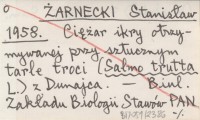 o ŻARNECKI Stanisław
1958. Ciężar ikry otrzy-
mywanej przy sztucznym
tarle troci (Salmo trutta
L.) z Dunajca. — Biul.
Zakładu Biologii Stawów PAN
-/.